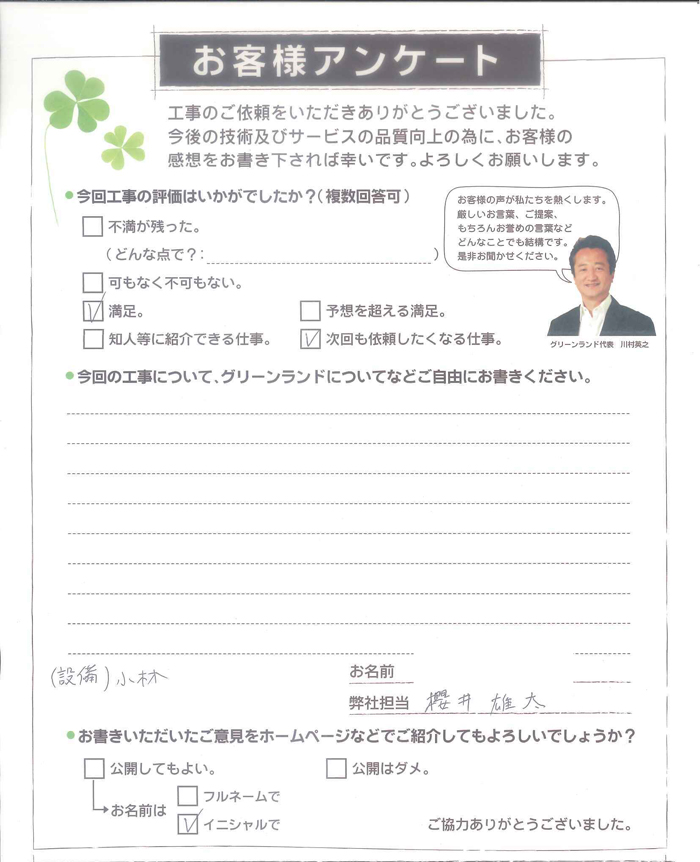 お客様アンケート
工事のご依頼をいただきありがとうございました。
今後の技術及びサービスの品質向上の為に、お客様の
感想をお書き下されば幸いです。よろしくお願いします。
今回工事の評価はいかがでしたか?(複数回答可)
不満が残った。
(どんな点で?: )
可もなく不可もない。
満足。
予想を超える満足。
知人等に紹介できる仕事。
次回も依頼したくなる仕事。
お客様の声が私たちを熱くします。
厳しいお言葉、ご提案、
もちろんお誉めの言葉など
どんなことでも結構です。
是非お聞かせください。
グリーンランド代表 川村英之
今回の工事について、グリーンランドについてなどご自由にお書きください。
(設備)小林
お名前
弊社担当 櫻井 雄太
お書きいただいたご意見をホームページなどでご紹介してもよろしいでしょうか?
公開してもよい。
公開はダメ。
お名前は
フルネームで
イニシャルで
ご協力ありがとうございました。